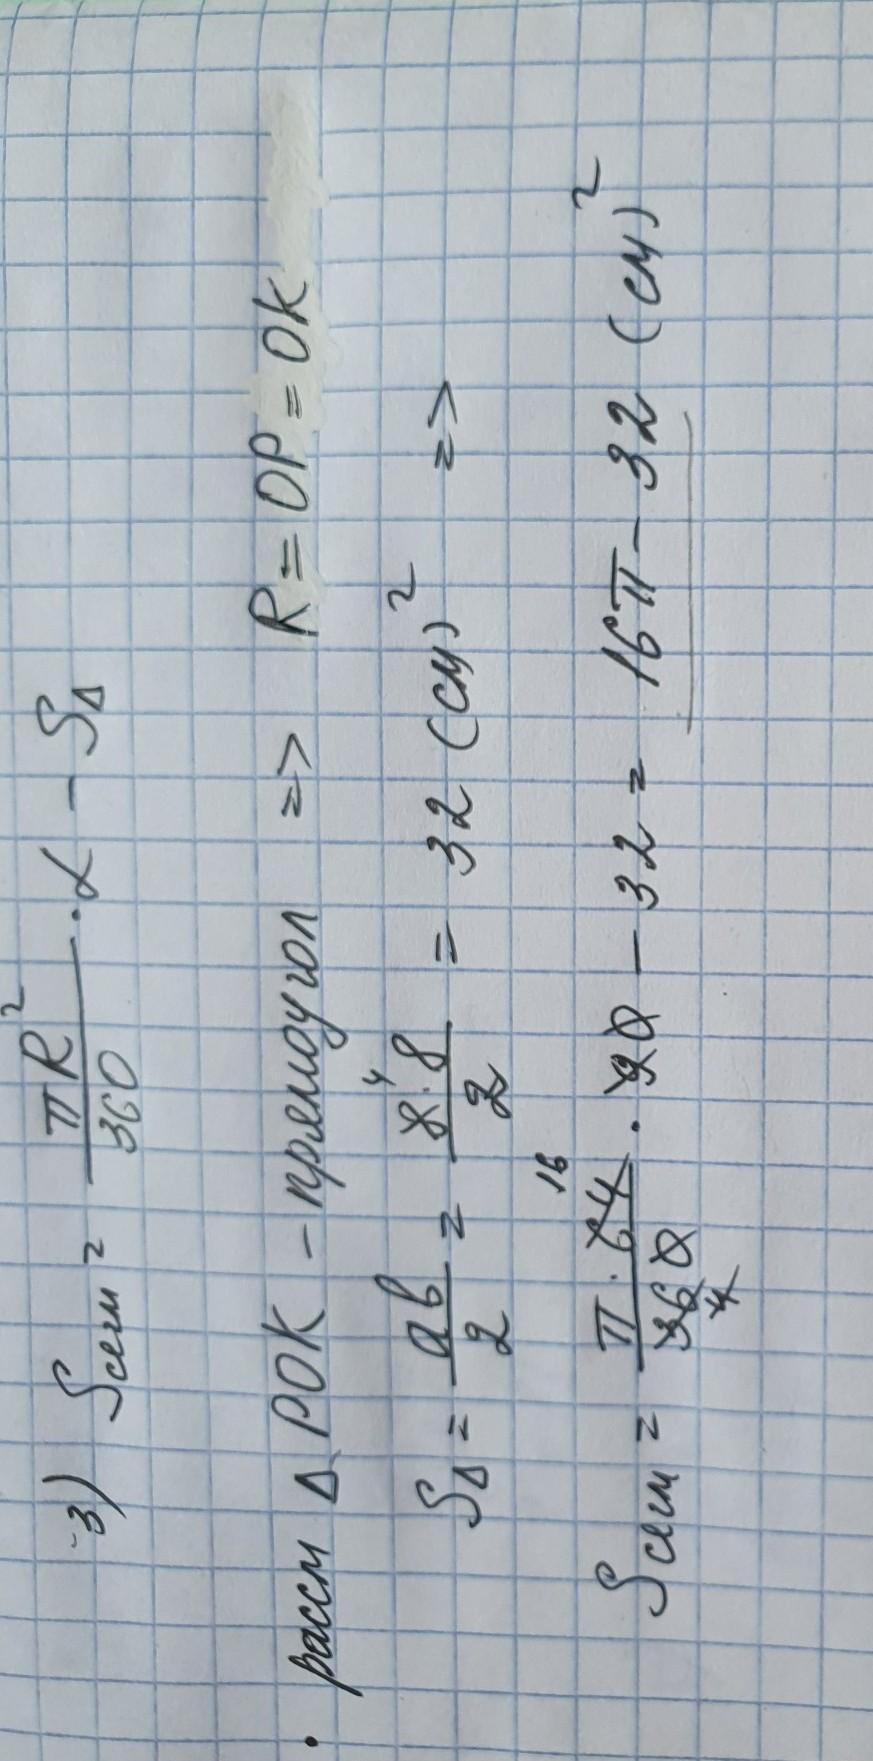 3) Sсегм = πR²/360 · α − S△
• рассм △ POK – прямоугол => R = OP = OK
S△ = ab/2 = 8·8/2 = 32 (см)² =>
Sсегм = π·64/360 · 90 − 32 = 16π − 32 (см)²